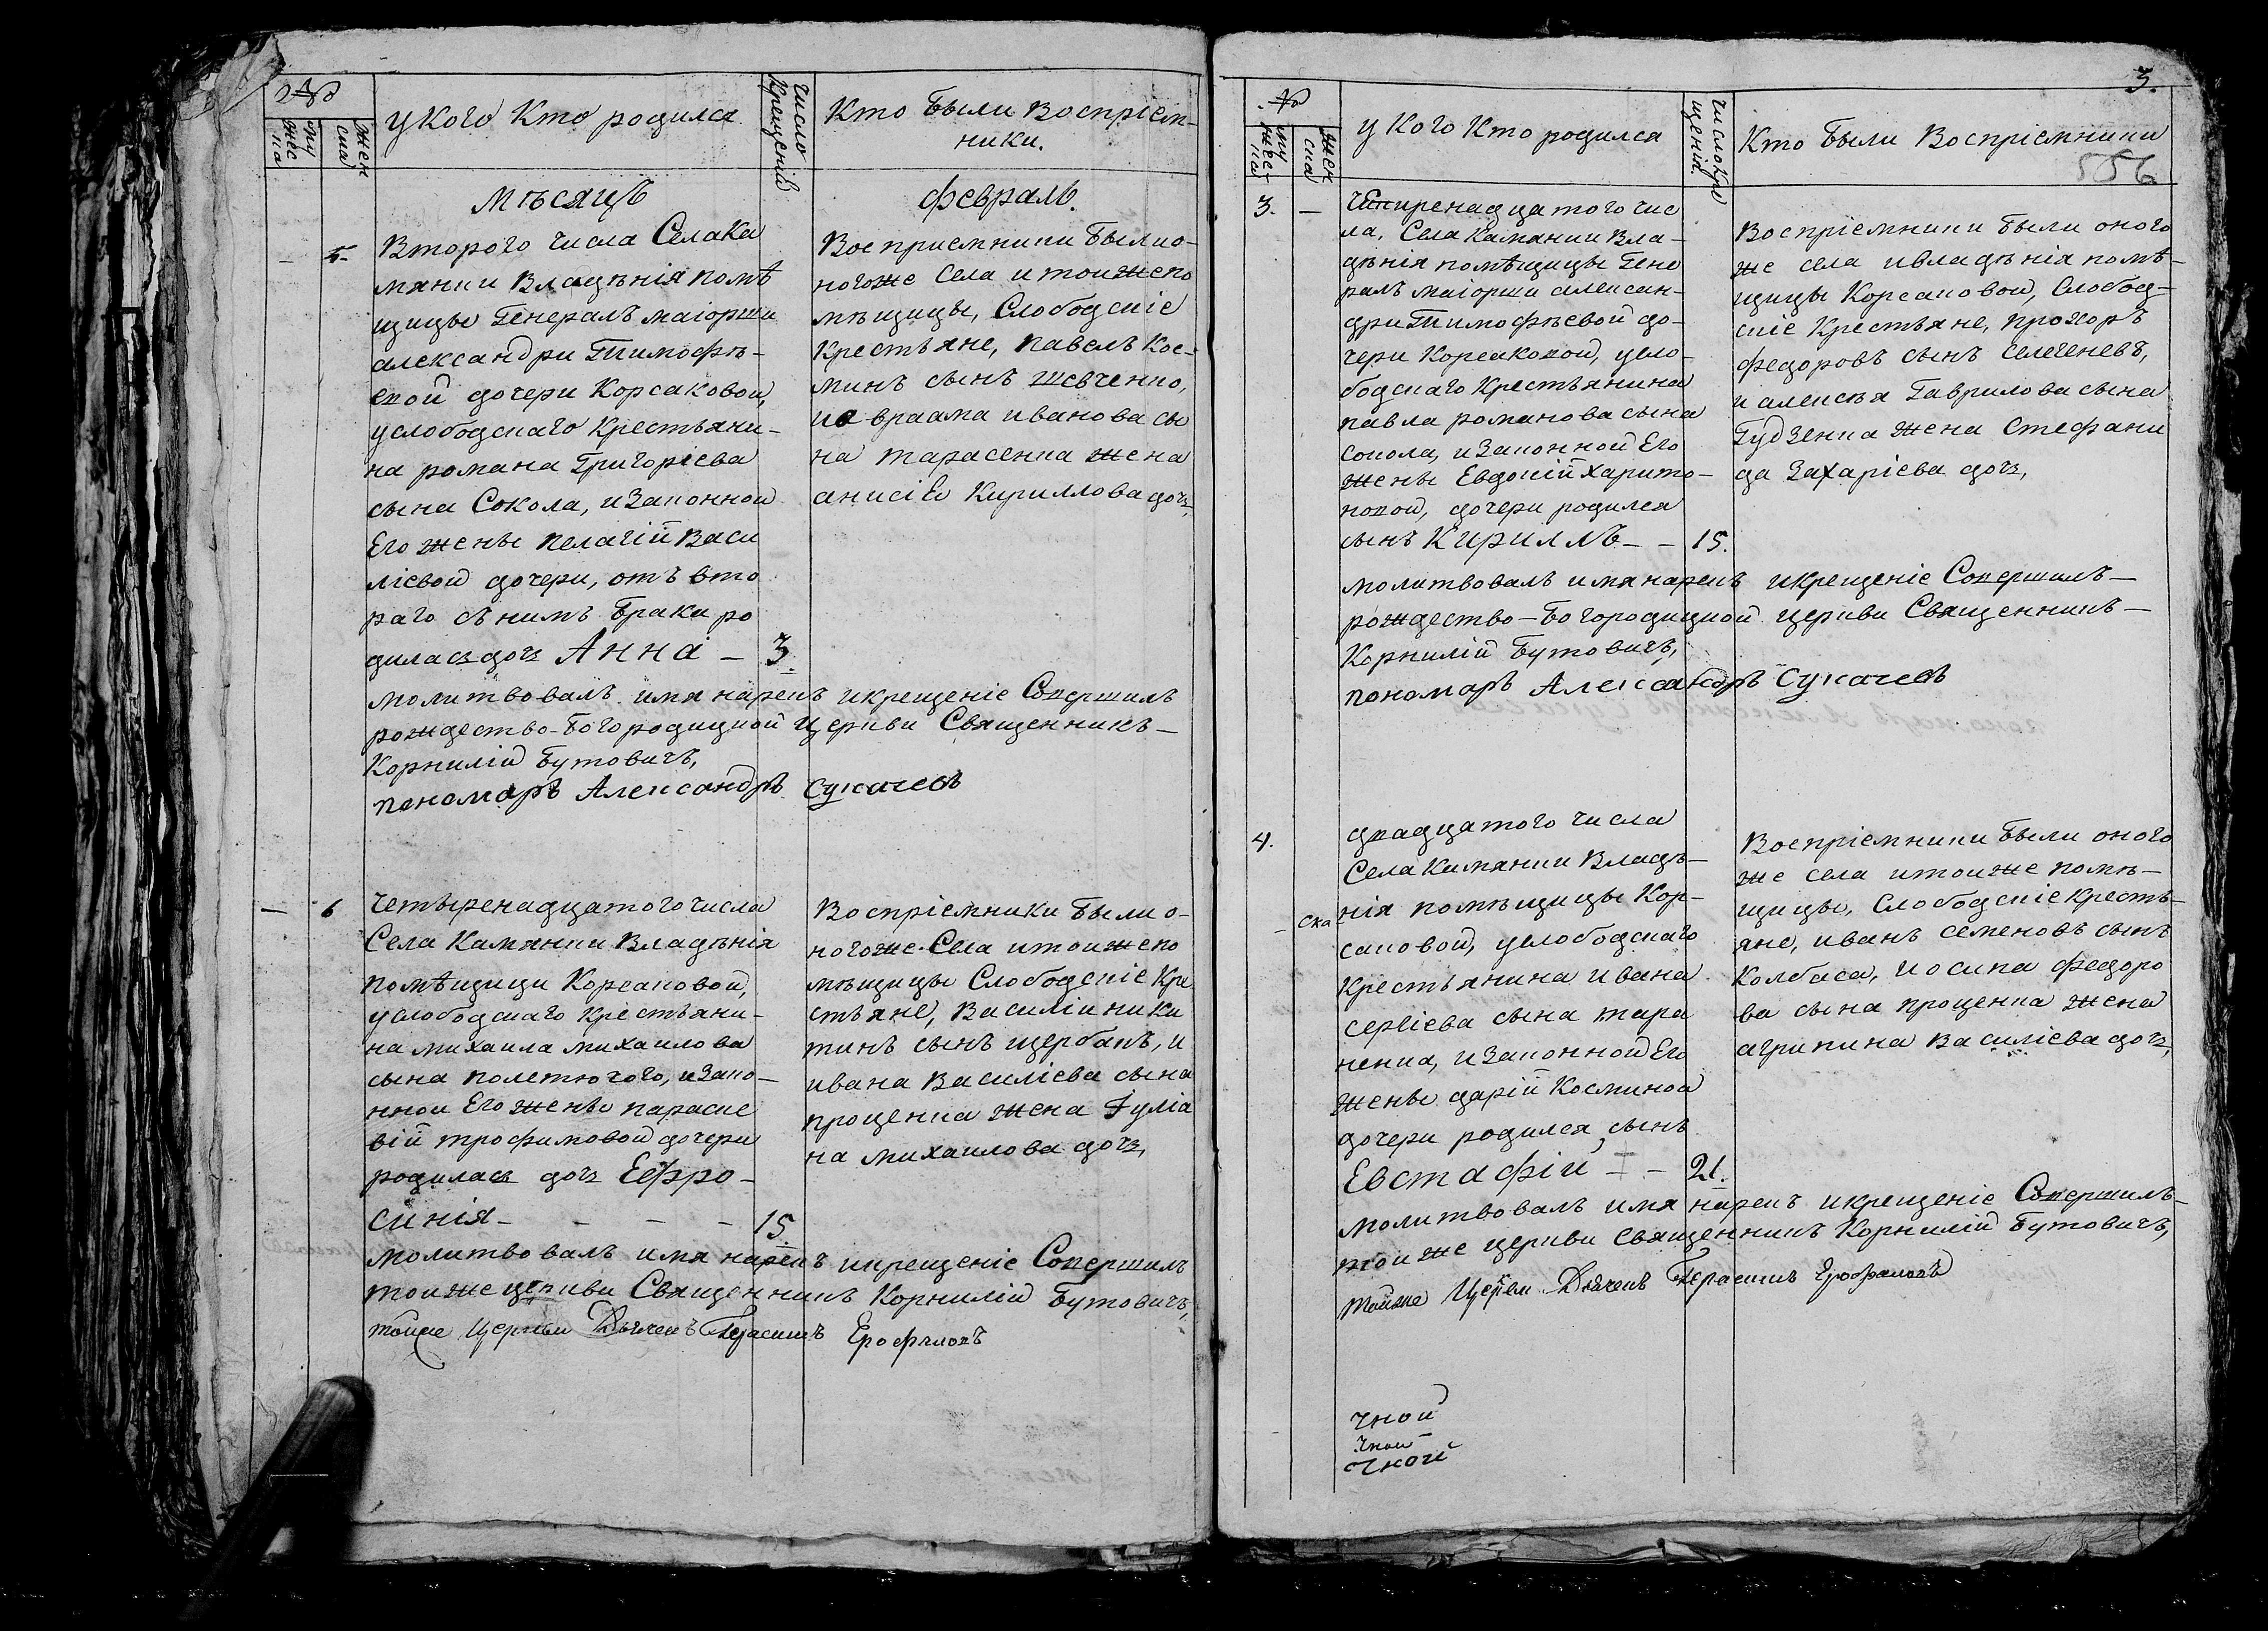 №
муж
еска
жен
ска
у кого Кто родился
число
Крещенія
Кто были Воспріем-
ники.
Мѣсяцъ
февраль.
5.
Второго числа Села Ка
мянки Владѣнія помѣ
щицы Генералъ маіорши
александри Тимофѣ-
евой дочери Корсаковой,
услободскаго Крестьяни-
на романа Григоріева
сына Сокола, и Законной
Его жены пелагій Васи
ліевой дочери, отъ вто
раго съ нимъ брака ро
дилась доч Анна - 3.
Восприемники были о-
ногоже Села и тоижепо
мѣщицы, Слободскіе
Крестьяне, павелъ Кос-
минъ сынъ шевченко,
и авраама иванова сы
на тарасенка жена
анисія Кириллова доч,
молитвовалъ имя нарекъ икрещеніе Совершилъ
рождество-богородичной Церкви Священникъ-
Корнилій Бутовичъ,
пономарь Александръ Сукачевъ
6
Четыренадцатого числа
Села Камянки Владѣнія
помѣщици Корсаковой,
услободскаго крестьяни-
на михаила михаилова
сына полетючого, изако-
нной Его жены параске
вій трофимовой дочери
родилась доч Ефро-
синія - - - - 15.
Воспріемники были о-
ногоже Села итоижепо
мѣщицы Слободскіе Кре
стьяне, Василіи ники
тинъ сынъ щербакъ, и
ивана Василіева сына
проценка жена Іуліа
на михаилова доч,
молитвовалъ имя нарекъ икрещеніе Совершилъ
тоижецеркви Священникъ Корнилій Бутовичъ,
тойже Церкви Дьячекъ Герасимъ Ерофѣловъ
3.
№
муж
еска
жен
ска
у Кого Кто родился
число Кре
щенія.
Кто были Воспріемники
556
3. -
Четиренадцатого чис
ла, Села Камянки Вла-
дѣнія помѣщицы Гене
ралъ маіорши алексан-
дри Тимофѣевой до-
чери Корсаковой, усло-
бодскаго Крестьянина
павла романова сына
сокола, и Законной Его
жены Евдокій харито-
новой, дочери родился
сынъ Кириллъ - - 15.
Воспріемники были оного
же села ивладѣнія помѣ-
щицы Корсаковой, Слобод-
скіе Крестьяне, прохоръ
федоровъ сынъ Селегеневъ,
и алексѣя Гаврилова сына
Гудзенка жена Стефани
да Захаріева доч,
молитвовалъ имя нарекъ икрещеніе Совершилъ-
рождество-богородичной церкви Священникъ-
Корнилій Бутовичъ,
пономарь Александръ Сукачевъ
4.
двадцатого числа
Села Камянки Владѣ-
нія помѣщицы Кор-
саковой, услободскаго
Крестьянина ивана
сергіева сына тара
ненка, и Законной Его
жены дарій Косминой
дочери родился, сынъ
Евстафіи - - 21.
Воспріемники были оного
же села итоиже помѣ-
щицы, Слободскіе кресть-
яне, иванъ семеновъ сынъ
Колбаса, иосипа федоро
ва сына проценка жена
агрипина Василіева доч,
ска
молитвовалъ имя нарекъ икрещеніе Совершилъ-
тоиже церкви священникъ Корнилій Бутовичъ,
тойже Церкви Дьячекъ Герасимъ Ерофѣловъ
чной
чной
чной